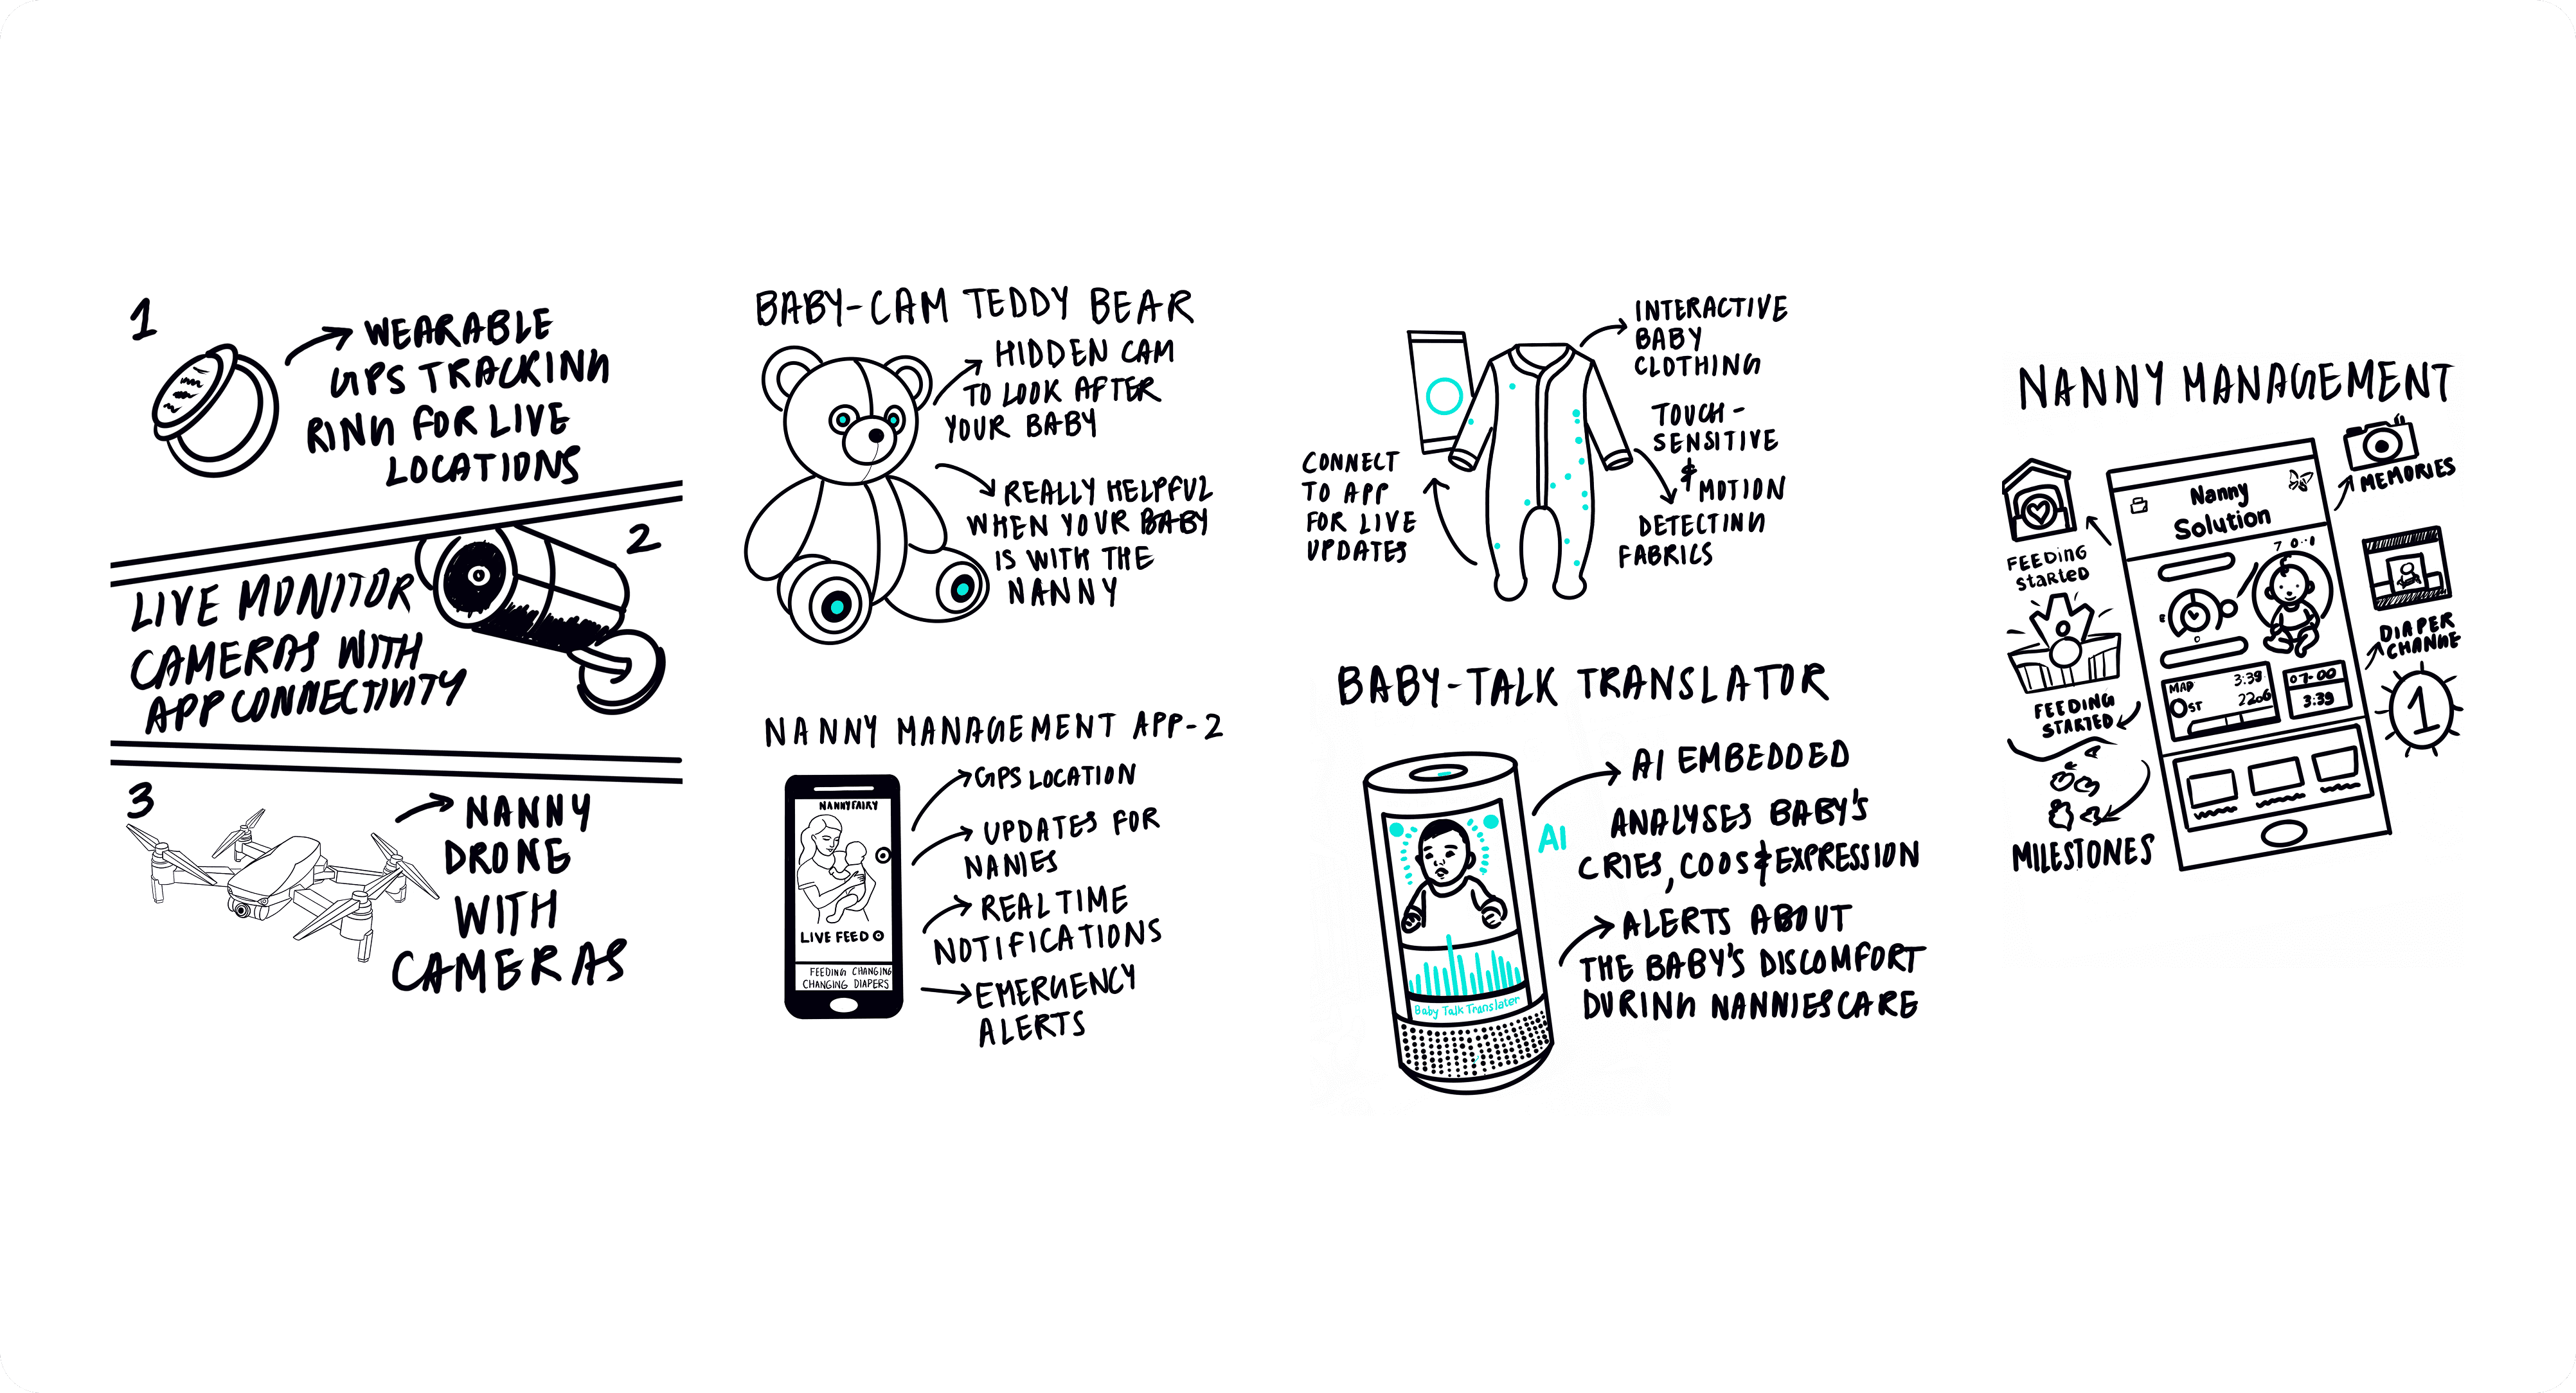 1
WEARABLE
GPS TRACKING
RING FOR LIVE
LOCATIONS
2
LIVE MONITOR
CAMERAS WITH
APP CONNECTIVITY
3
NANNY
DRONE
WITH
CAMERAS
BABY-CAM TEDDY BEAR
HIDDEN CAM
TO LOOK AFTER
YOUR BABY
REALLY HELPFUL
WHEN YOUR BABY
IS WITH THE
NANNY
NANNY MANAGEMENT APP-2
NANNYFAIRY
LIVE FEED
FEEDING CHANGING
CHANGING DIAPERS
GPS LOCATION
UPDATES FOR
NANIES
REAL TIME
NOTIFICATIONS
EMERGENCY
ALERTS
INTERACTIVE
BABY
CLOTHING
TOUCH-
SENSITIVE
&
MOTION
DETECTING
FABRICS
CONNECT
TO APP
FOR LIVE
UPDATES
BABY-TALK TRANSLATOR
AI EMBEDDED
AI
ANALYSES BABY'S
CRIES, COOS & EXPRESSION
ALERTS ABOUT
THE BABY'S DISCOMFORT
DURING NANNIES CARE
Baby Talk Translater
NANNY MANAGEMENT
MEMORIES
Nanny
Solution
FEEDING
STARTED
FEEDING
STARTED
MILESTONES
DIAPER
CHANGE
1
MAP 3:39
2206
07-00
3:39